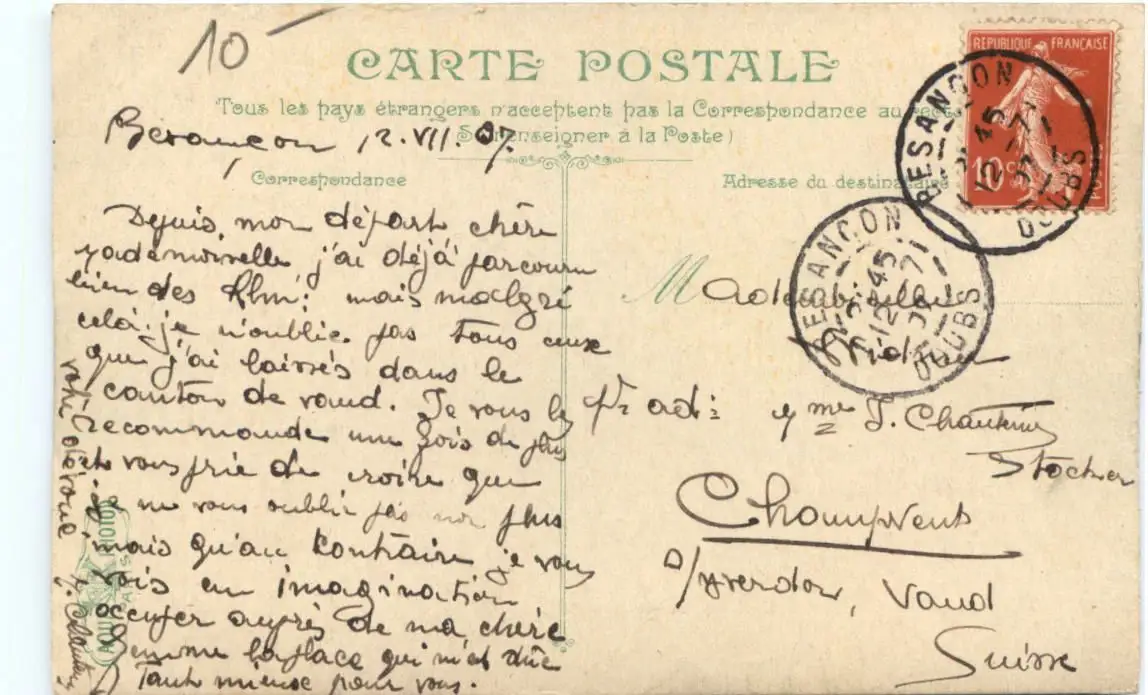 10
CARTE POSTALE
Tous les pays étrangers n'acceptent pas la Correspondance au recto
(Se renseigner à la Poste)
Besançon 12.VII.07.
Correspondance
Adresse du destinataire
Depuis mon départ chère
Mademoiselle, j'ai déjà parcouru
bien des Klm: mais malgré
celà je n'oublie pas tous ceux
que j'ai laissés dans le
canton de vaud. Je vous les
recommande une fois de plus
et vous prie de croire que
je ne vous oublie pas non plus
mais qu'au contraire je vous
vois en imagination
occuper auprès de ma chère
femme la place qui m'est dûe
Tant mieux pour vous.
votre dévoué
REPUBLIQUE FRANÇAISE
10 c
POSTES
BESANÇON
45
12 7
07
DOUBS
BESANÇON
45
12 7
07
DOUBS
Mademoiselle
pr ad: Mme J.
Stocker
Champvent
s/Yverdon, Vaud
Suisse